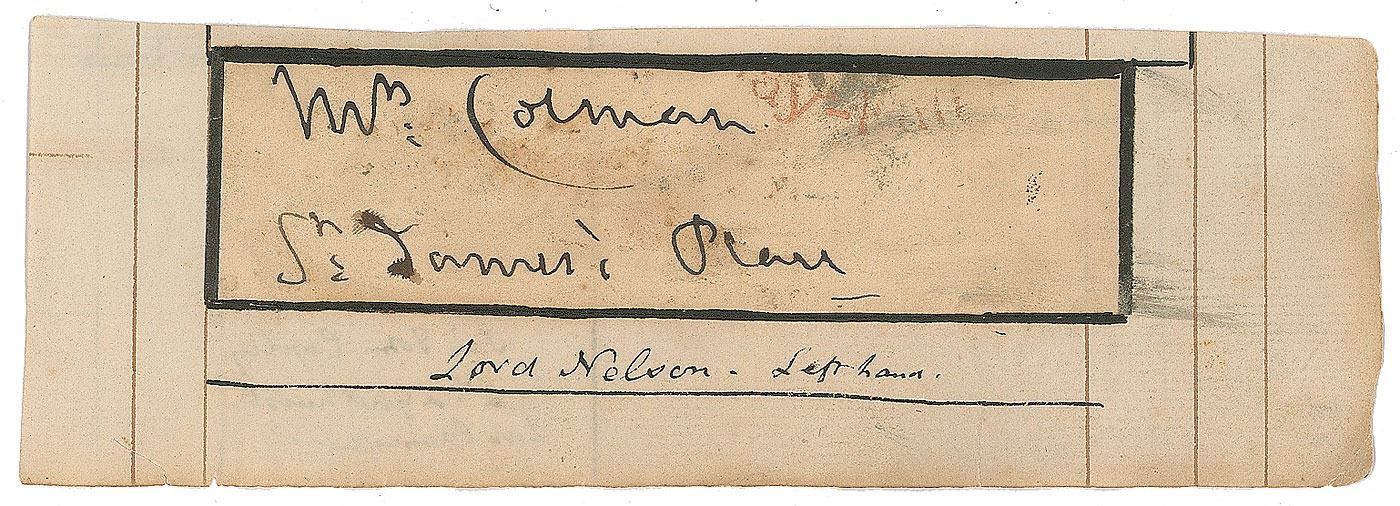 Mrs. Colman.
St. James's Place
Lord Nelson - Left hand.